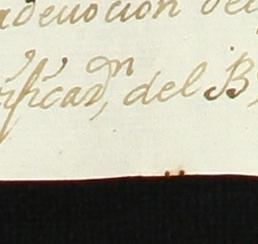 adevocion del
rificazn, del B